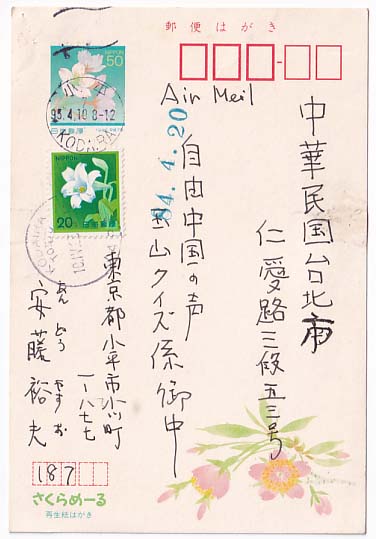 郵便はがき
NIPPON
50
小平
95.4.10 8-12
日本郵便
KODAIRA
NIPPON
20
日本郵便
Air Meil
84.4.20
中華民国台北市
仁愛路三段五三号
自由中国の声
玉山クイズ係御中
東京都小平市小川町
一-八七七
あんどう やすお
安藤裕夫
187
さくらめーる
再生紙はがき